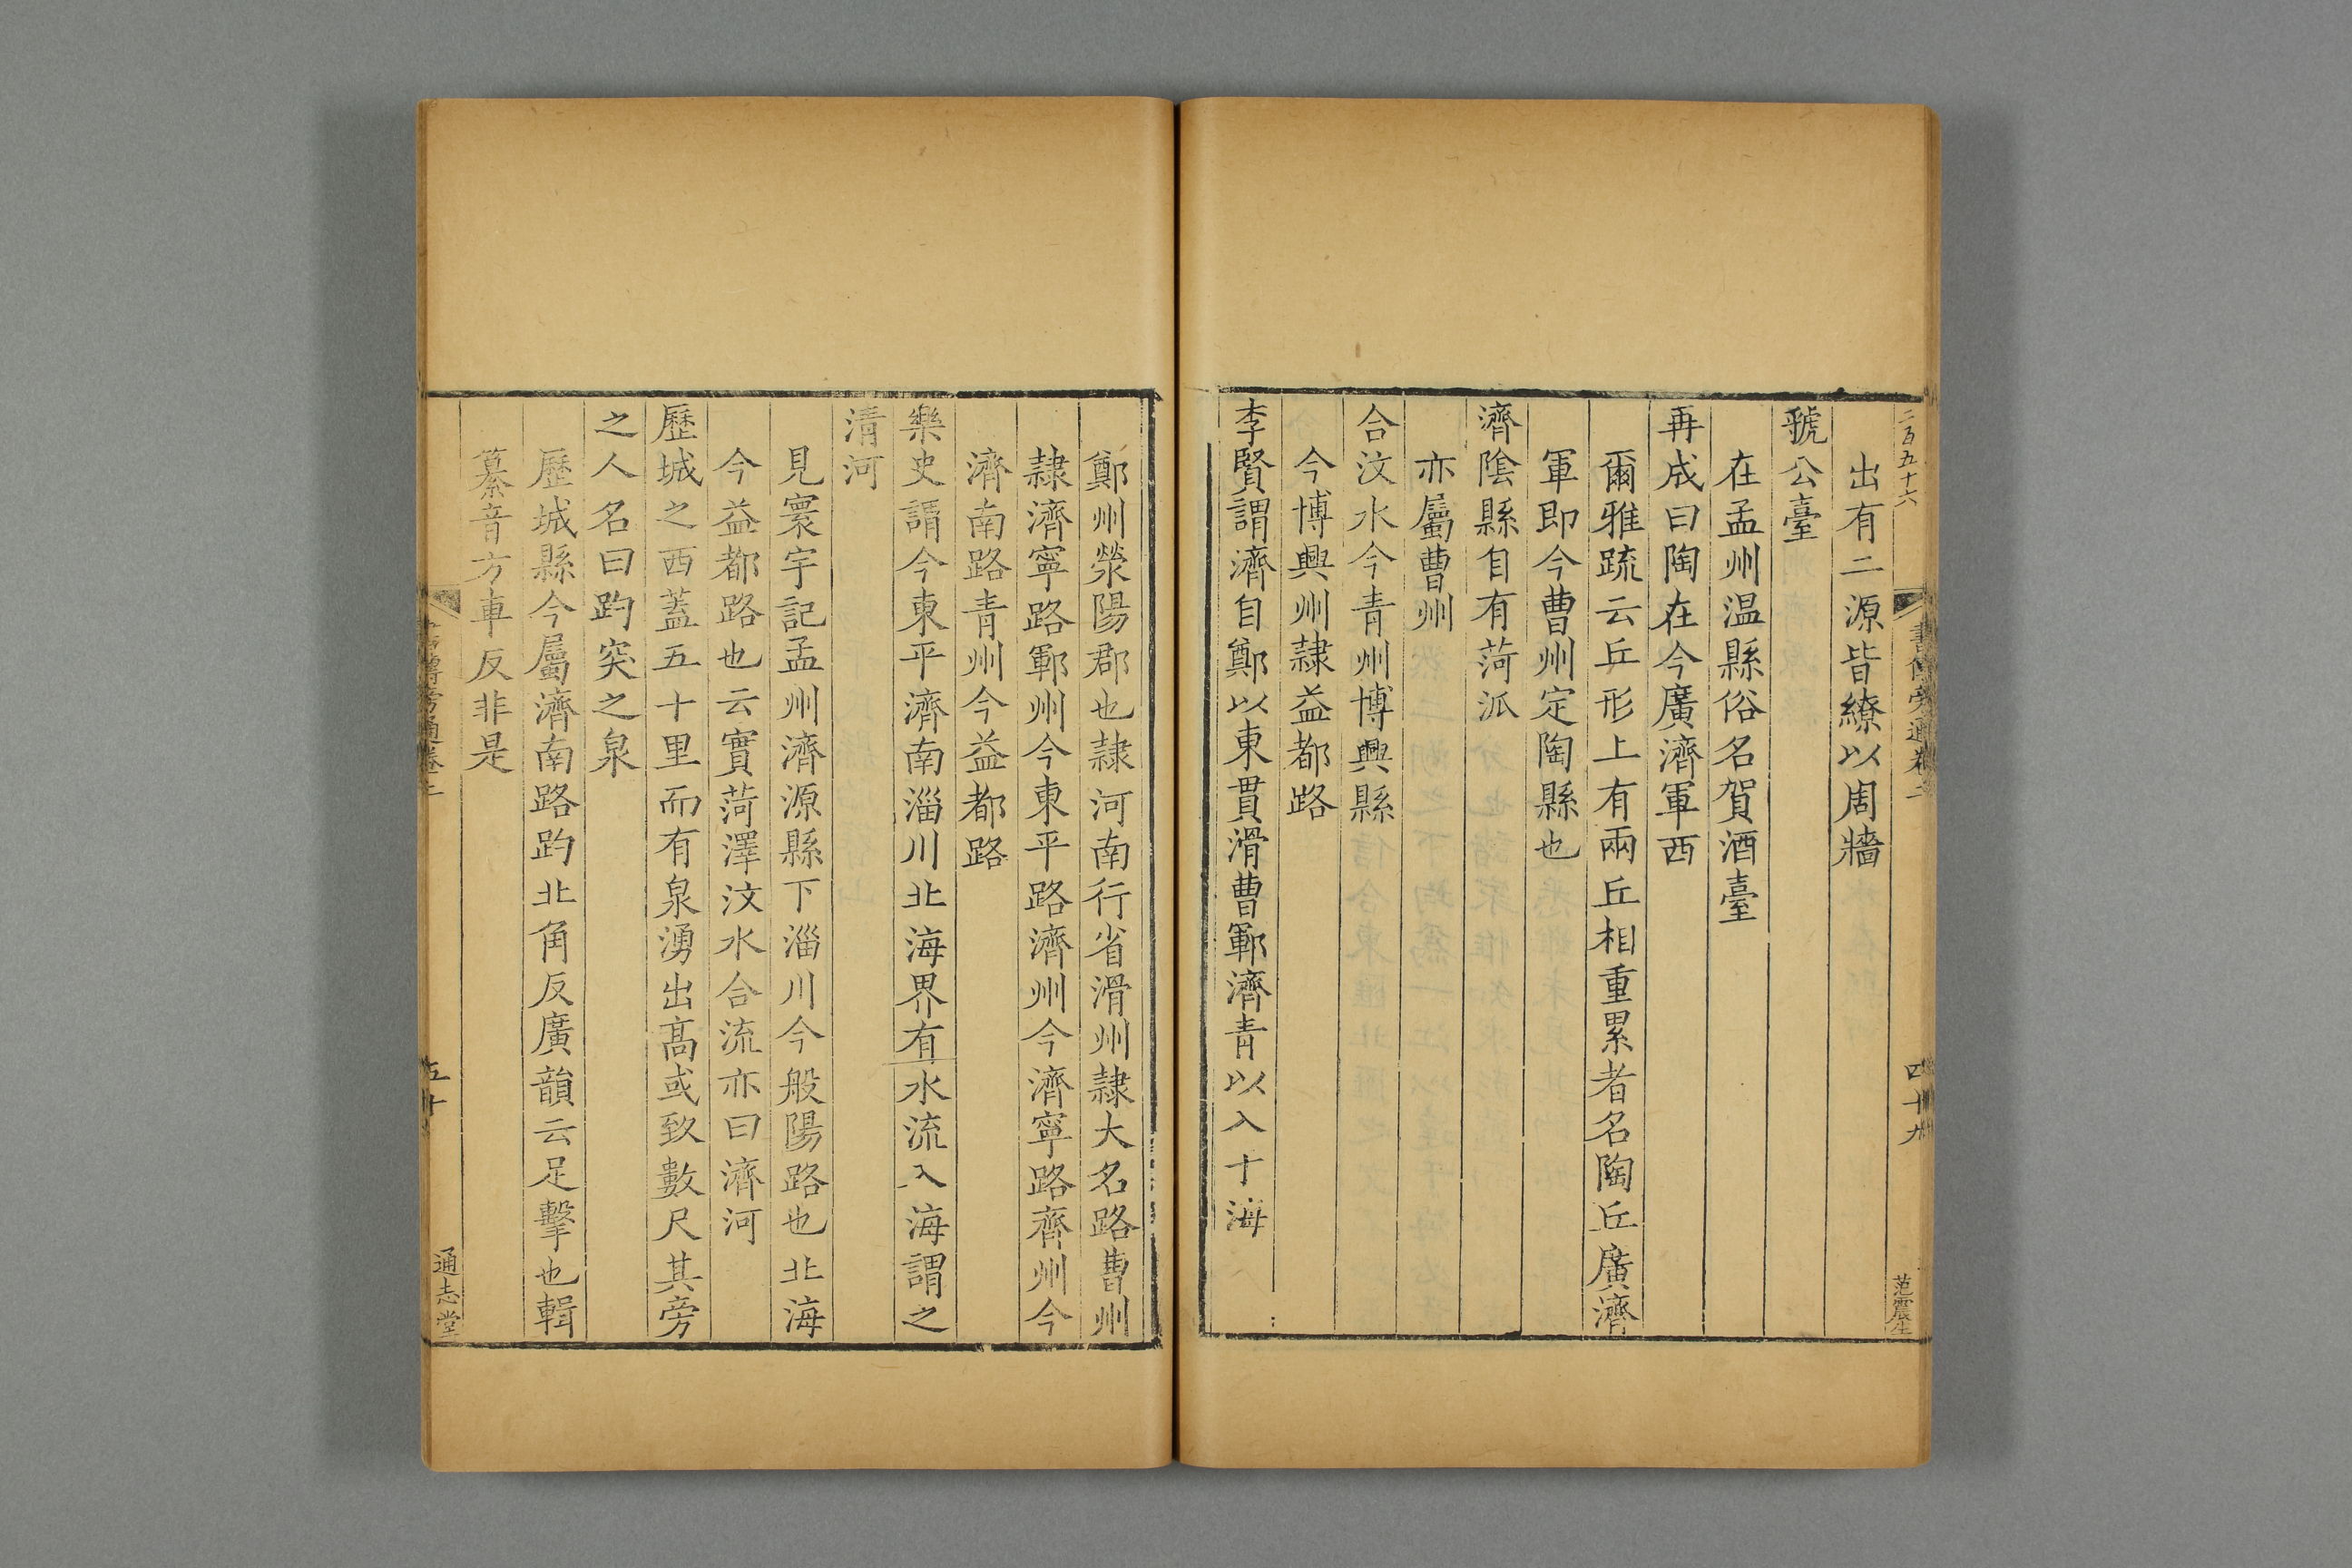 二百五十六
書傳旁通卷二
四十九
范震生
出有二源皆繚以周牆
虢公臺
在孟州温縣俗名賀酒臺
再成曰陶在今廣濟軍西
爾雅疏云丘形上有兩丘相重累者名陶丘廣濟
軍即今曹州定陶縣也
濟陰縣自有菏派
亦屬曹州
合汶水今青州博興縣
今博興州隷益都路
李賢謂濟自鄭以東貫滑曹鄆濟青以入于海
鄭州滎陽郡也隷河南行省滑州隷大名路曹州
隷濟寧路鄆州今東平路濟州今濟寧路齊州今
濟南路青州今益都路
樂史謂今東平濟南淄川北海界有水流入海謂之
清河
見寰宇記孟州濟源縣下淄川今般陽路也北海
今益都路也云實菏澤汶水合流亦曰濟河
歷城之西蓋五十里而有泉湧出髙或致數尺其旁
之人名曰趵突之泉
歷城縣今屬濟南路趵北角反廣韻云足擊也輯
纂音方車反非是
書傳旁通卷二
五十
通志堂